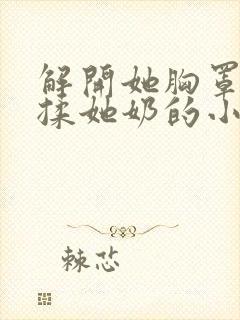 解開她胸罩
揉她奶的小
棘芯